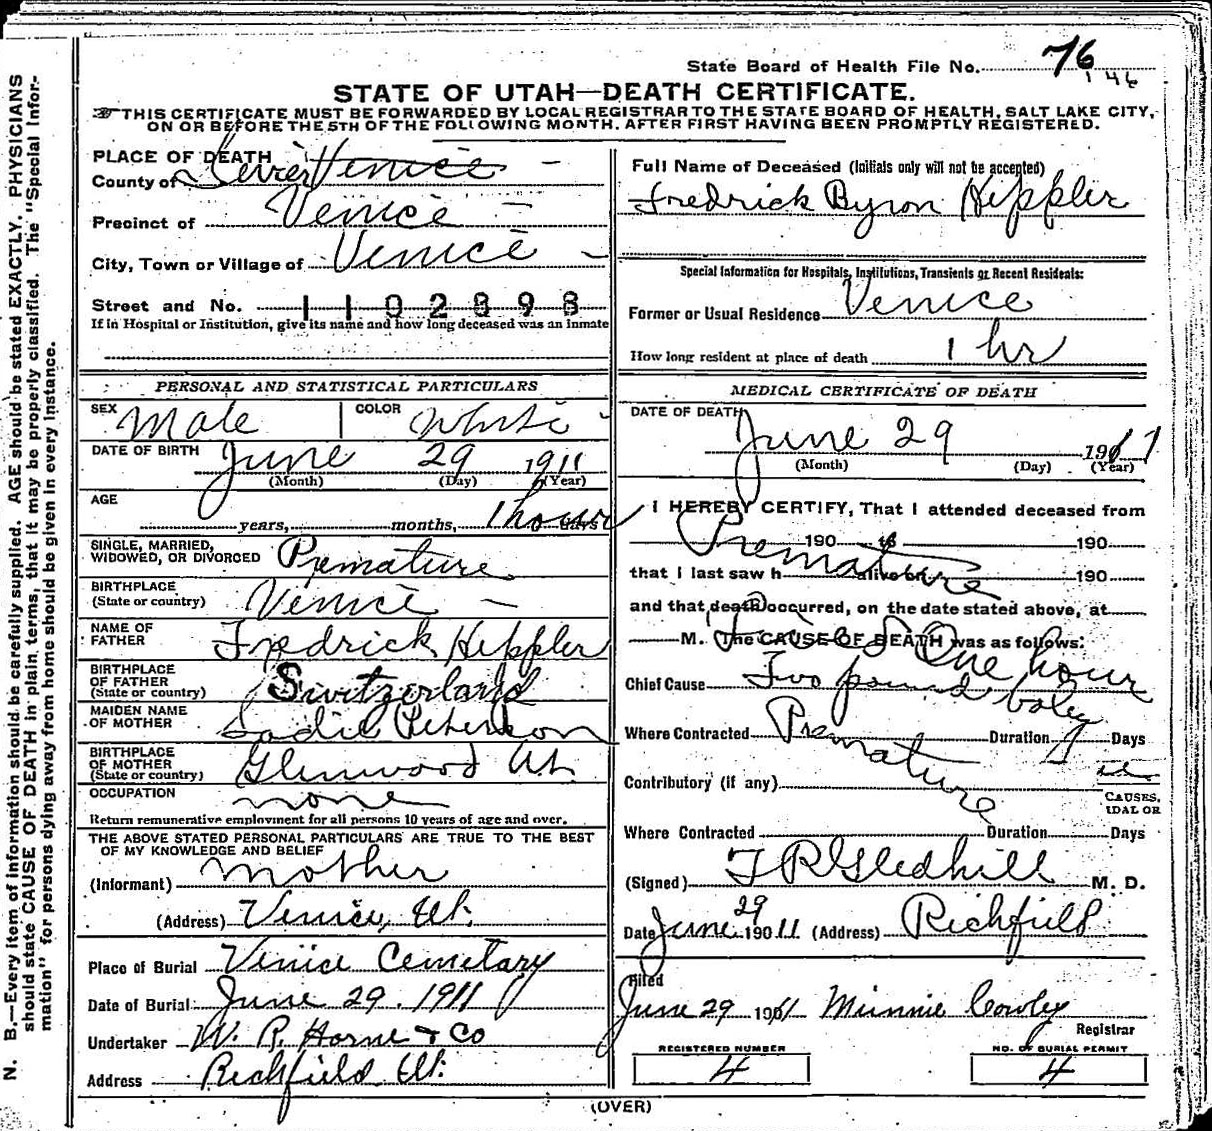 State Board of Health File No. 76
146
STATE OF UTAH—DEATH CERTIFICATE.
THIS CERTIFICATE MUST BE FORWARDED BY LOCAL REGISTRAR TO THE STATE BOARD OF HEALTH, SALT LAKE CITY,
ON OR BEFORE THE 5TH OF THE FOLLOWING MONTH, AFTER FIRST HAVING BEEN PROMPTLY REGISTERED.
PLACE OF DEATH
County of Sevier Venice
Precinct of Venice
City, Town or Village of Venice
Street and No. 1102898
If in Hospital or Institution, give its name and how long deceased was an inmate
Full Name of Deceased (Initials only will not be accepted)
Fredrick Byron Heppler
Special Information for Hospitals, Institutions, Transients or Recent Residents:
Former or Usual Residence Venice
How long resident at place of death 1 hr
PERSONAL AND STATISTICAL PARTICULARS
SEX Male COLOR White
DATE OF BIRTH June 29 1911
(Month) (Day) (Year)
AGE
years, months, 1 hour days
SINGLE, MARRIED,
WIDOWED, OR DIVORCED Premature
BIRTHPLACE
(State or country) Venice
NAME OF
FATHER Fredrick Heppler
BIRTHPLACE
OF FATHER
(State or country) Switzerland
MAIDEN NAME
OF MOTHER Sadie Peterson
BIRTHPLACE
OF MOTHER
(State or country) Glenwood Ut.
OCCUPATION none
Return remunerative employment for all persons 10 years of age and over.
THE ABOVE STATED PERSONAL PARTICULARS ARE TRUE TO THE BEST
OF MY KNOWLEDGE AND BELIEF
(Informant) mother
(Address) Venice, Ut.
Place of Burial Venice Cemetary
Date of Burial June 29. 1911
Undertaker W. R. Horne & Co
Address Richfield Ut.
MEDICAL CERTIFICATE OF DEATH
DATE OF DEATH
June 29 1911
(Month) (Day) (Year)
I HEREBY CERTIFY, That I attended deceased from
190 to 190
Premature
that I last saw h alive on 190
and that death occurred, on the date stated above, at
M. The CAUSE OF DEATH was as follows:
Lived One hour
Chief Cause Two pound baby
Where Contracted Premature Duration Days
Contributory (if any)
CAUSES,
IDAL OR
Where Contracted Duration Days
(Signed) T R Gledhill M. D.
Date June 29 1911 (Address) Richfield
Filed
June 29 1911 Minnie Cowley
Registrar
REGISTERED NUMBER
4
NO. OF BURIAL PERMIT
4
(OVER)
N. B.—Every item of information should be carefully supplied. AGE should be stated EXACTLY. PHYSICIANS
should state CAUSE OF DEATH in plain terms, that it may be properly classified. The "Special Infor-
mation" for persons dying away from home should be given in every instance.